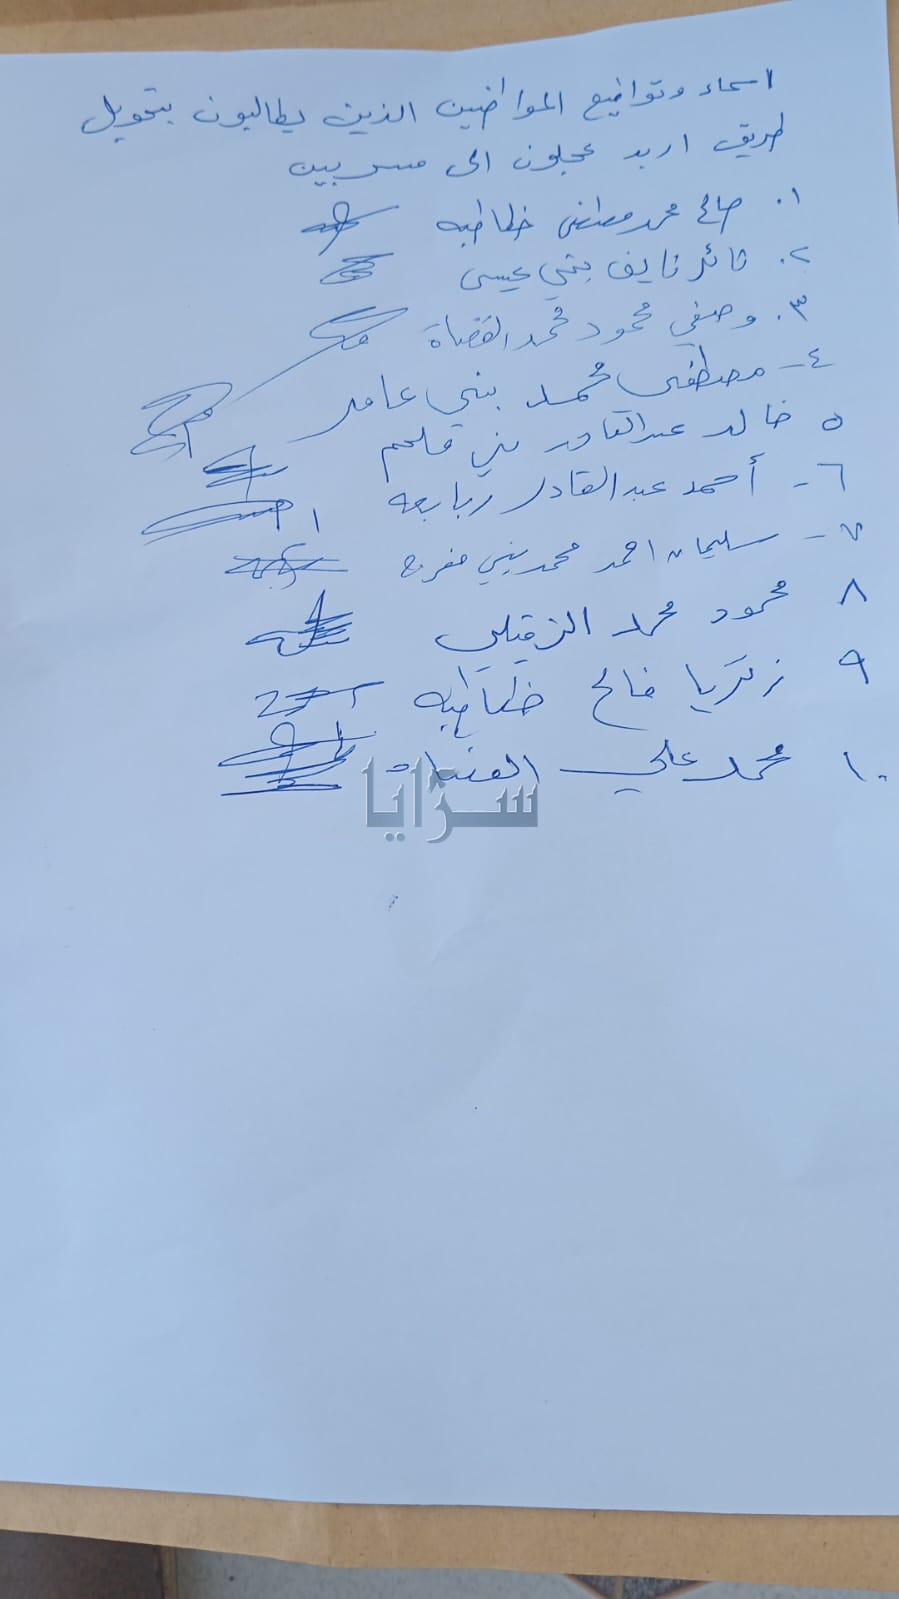 اسماء وتواقيع المواطنين الذين يطالبون بتحويل
طريق اربد عجلون الى مسربين
١. صالح محمد مصطفى خطاطبه
٢. ثائر نايف بني عيسى
٣. وصفي محمود محمد القضاة
٤- مصطفى محمد بني عامر
٥ خالد عبدالقادر بني ملحم
٦- أحمد عبدالقادر ربابعه
٧- سليمان احمد محمد بني مفرح
٨ محمود محمد
٩ زكريا فالح خطاطبه
١٠ محمد علي القضاة
سرايا